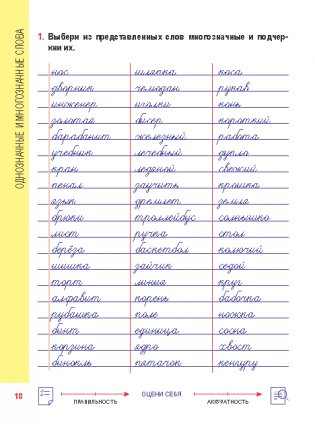 ОДНОЗНАЧНЫЕ И МНОГОЗНАЧНЫЕ СЛОВА
1. Выбери из представленных слов многозначные и подчер-
кни их.
нос шляпка коса
дворник чемодан рукав
инженер иголки конь
золотая бисер короткий
барабанит железный работа
учебник лечебный дупло
кран ледяной свежий
пенал заучить крошка
язык
брюки троллейбус солнышко
лист ручка стол
берёза баскетбол колючий
шишка зайчик седой
торт линия круг
алфавит корень бабочка
рубашка поле ножка
бинт единица сосна
корзина ядро хвост
бинокль пятачок кенгуру
земля
18
ПРАВИЛЬНОСТЬ
ОЦЕНИ СЕБЯ
АККУРАТНОСТЬ